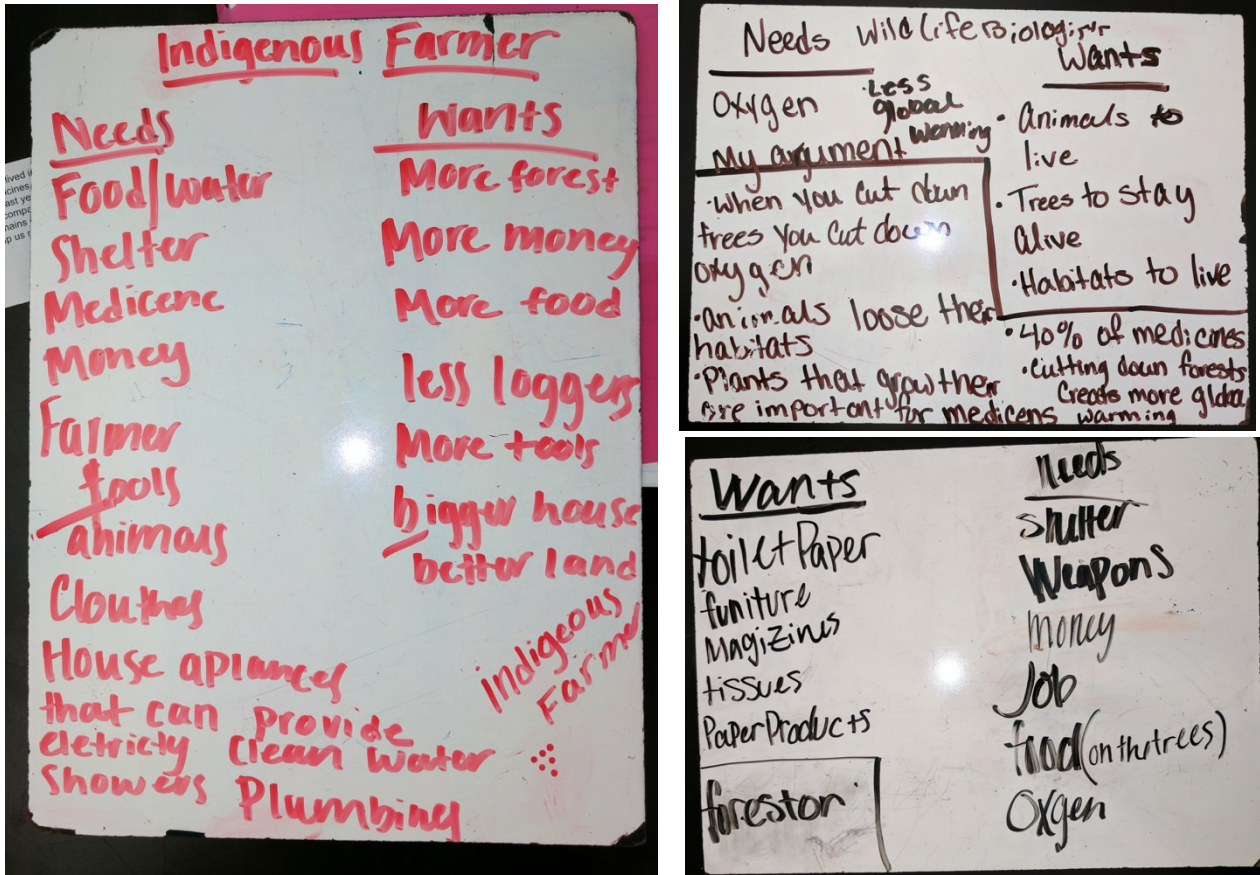 Indigenous Farmer
Needs
Food/water
Shelter
Medicene
Money
Farmer
tools
animals
Clouthes
House aplances
that can provide
eletricty clean water
showers Plumbing
Wants
More forest
More money
More food
less loggers
More tools
bigger house
better land
Indigeous
Farmer
lived i
icines,
ast ye
compa
nains
p us r
Needs Wild Life Biologist
Oxygen
·Less
global
warming
My argument
·When you cut down
trees you cut down
oxygen
·animals loose their
habitats
·Plants that grow their
are important for medicens
Wants
·Animals to
live
·Trees to stay
alive
·Habitats to live
·40% of medicines
·Cutting down forests
Creats more global
warming
Wants
toilet Paper
funiture
Magizines
tissues
Paper Products
forestor
Needs
Shulter
Weapons
money
Job
food (on the trees)
Oxgen